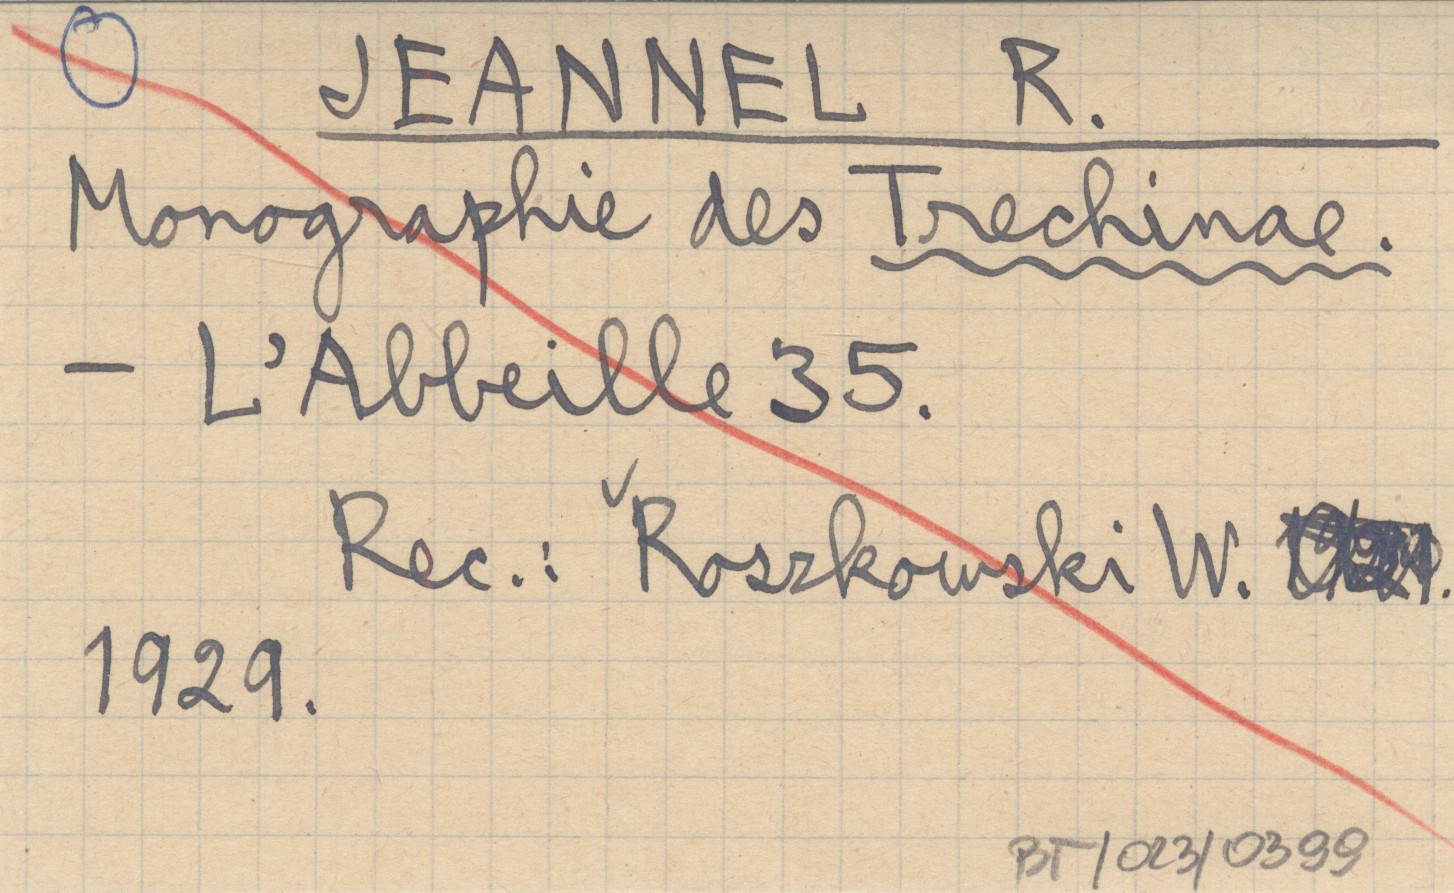 JEANNEL R.
Monographie des Trechinae.
- L'Abbeille 35.
Rec.: Roszkowski W.
1929.
BT/023/0399